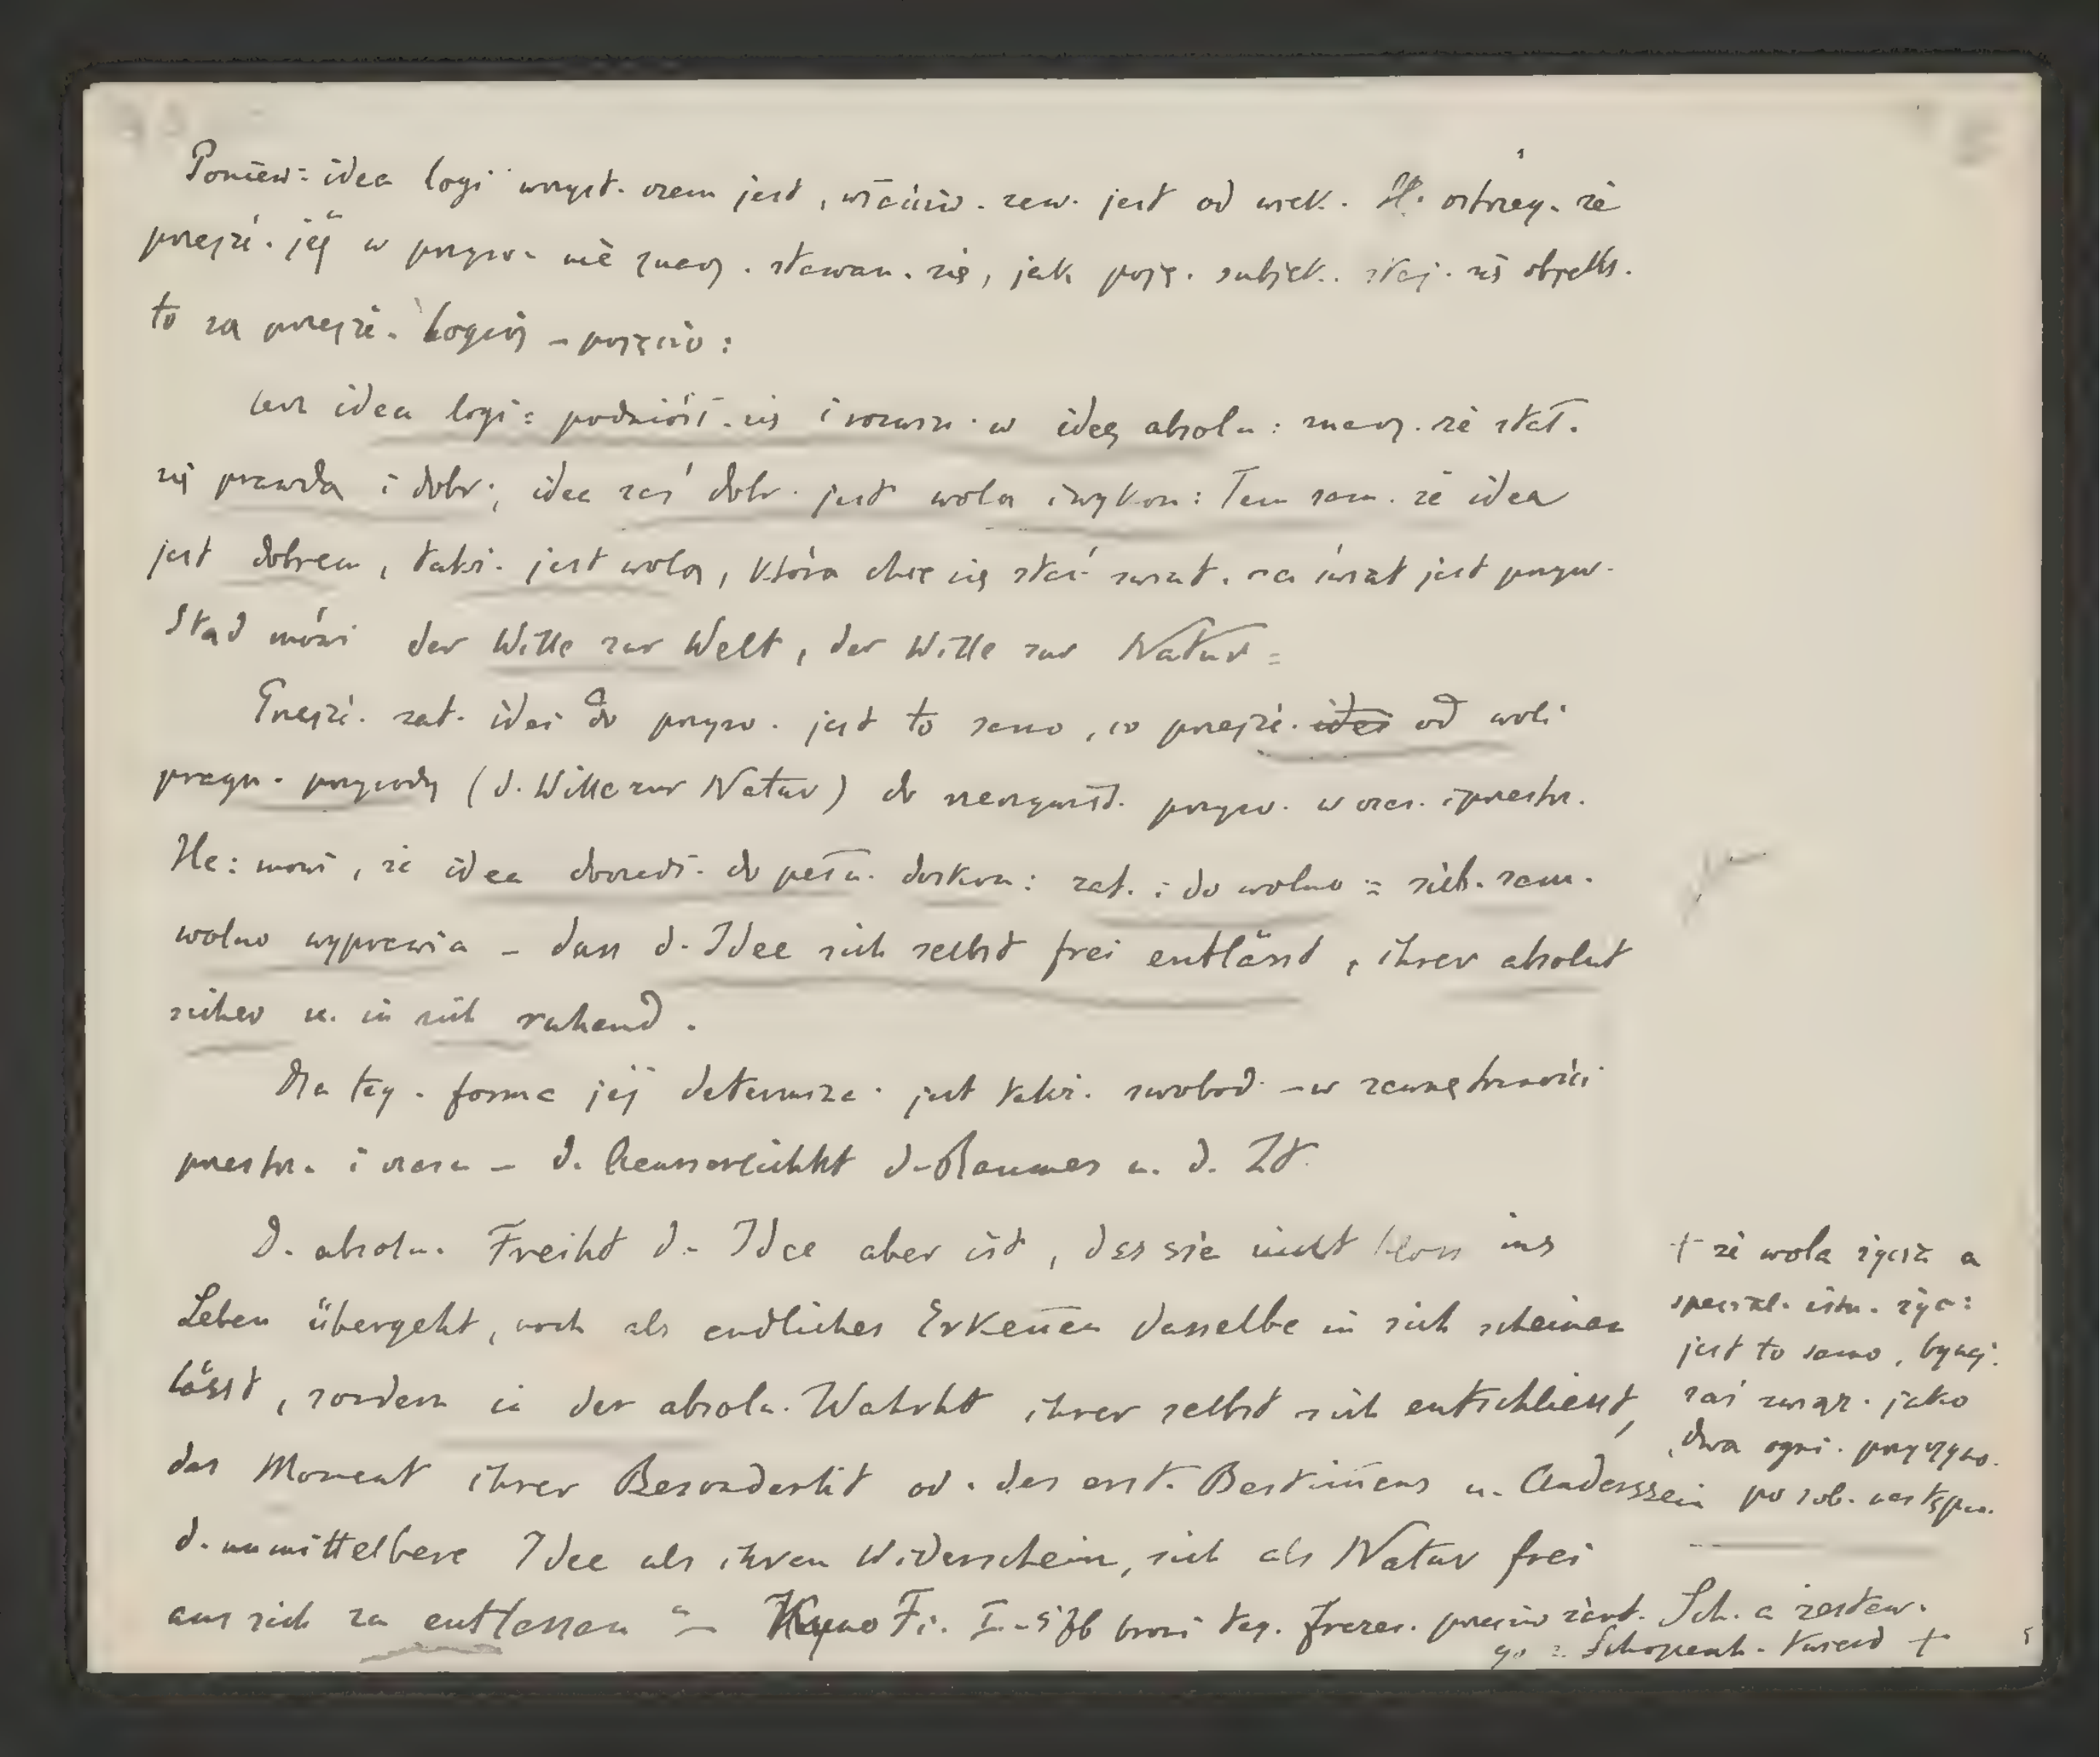 Poniew: idea logi wszyst. czem jest, właściw. zew. jest od wiek. H. ostrzeg. że
przejśi. jej w przyro. nie znacz. stawan. się, jak poję. subjek. staj. się objekt.
to są przejśi. logicz – pojęcio:
lecz idea logi: podniósł. się i rozwin. w ideę absolu: znacz. że stał.
się prawdą i dobr:, idea zaś dobr. jest wolą i wykon: Tem sam. że idea
jest dobrem, takż. jest wolą, która chce się stać świat. na świat jest przyro.
Stąd mówi der Wille zur Welt, der Wille zur Natur =
Przejśi. zat. idei do przyro. jest to samo, co przejśi. od woli
pragn. przyrody (d. Wille zur Natur) do rzeczywist. przyro. w czas. i przestrz.
He: mówi, że idea doszedł. do pełn. doskon: zat. i do wolno = sieb. sam.
wolno wyprawia – dass d. Idee sich selbst frei entlässt, ihrer absolut
sicher u. in sich ruhend.
Dla teg. forma jej determina. jest takż. swobod. – w zewnętrzności
przestrz. i czasu – d. Aeusserlichkt d. Raumes u. d. Zt.
D. absolu. Freiht d. Idee aber ist, das sie nicht bloss ins
Leben übergeht, noch als endliches Erkennen dasselbe in sich scheinen
lässt, sondern in der absolu. Wahrht ihrer selbst sich entschliesst,
das Moment ihrer Besonderht od. des erst. Bestimmens u. Anderssein
d. unmittelbare Idee als ihren Widerschein, sich als Natur frei
aus sich zu entlassen" – Kuno Fi. I. 576 broni teg. frazes. przeciw zarz. Sch. a zestaw.
go z Schopenh. twierd +
+ że wola życia a
specjal. istn. życ:
jest to samo, bynaj.
zaś związ. jako
dwa ogni. przyczyno.
po sob. następn.